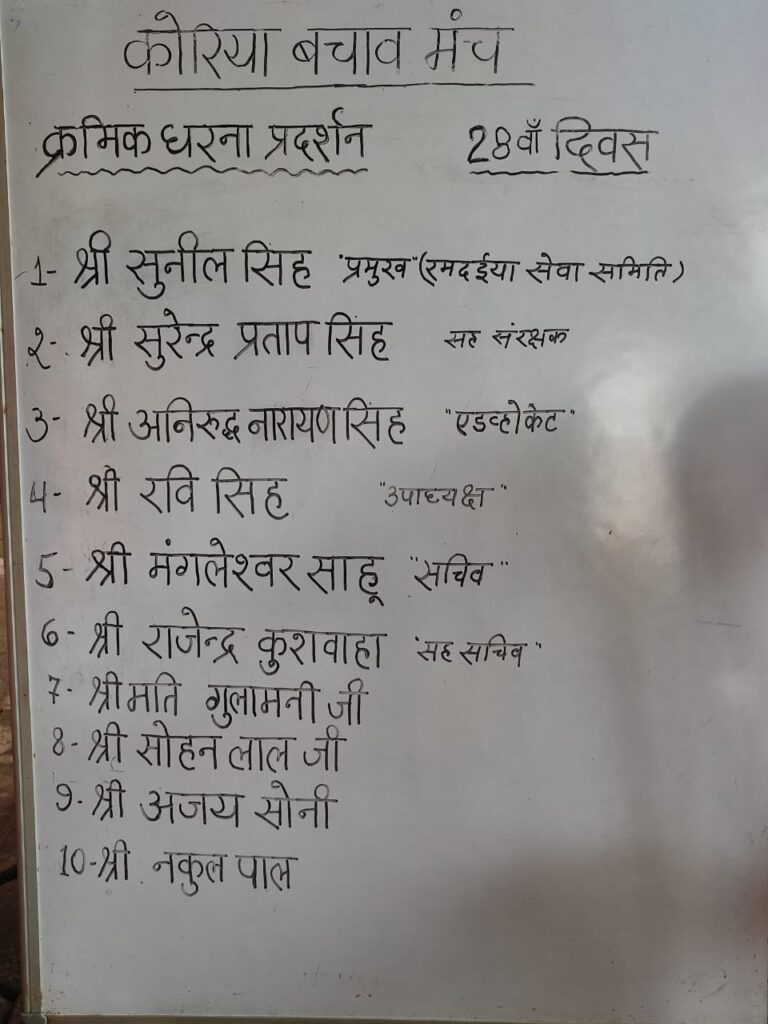 कोरिया बचाव मंच
क्रमिक धरना प्रदर्शन 28वाँ दिवस
1- श्री सुनील सिंह "प्रमुख" (रमदईया सेवा समिति)
२- श्री सुरेन्द्र प्रताप सिंह सह संरक्षक
3- श्री अनिरुद्ध नारायण सिंह "एडव्होकेट"
4- श्री रवि सिंह "उपाध्यक्ष"
5- श्री मंगलेश्वर साहू "सचिव"
6- श्री राजेन्द्र कुशवाहा "सह सचिव"
7- श्रीमति गुलामनी जी
8- श्री सोहन लाल जी
9- श्री अजय सोनी
10- श्री नकुल पाल